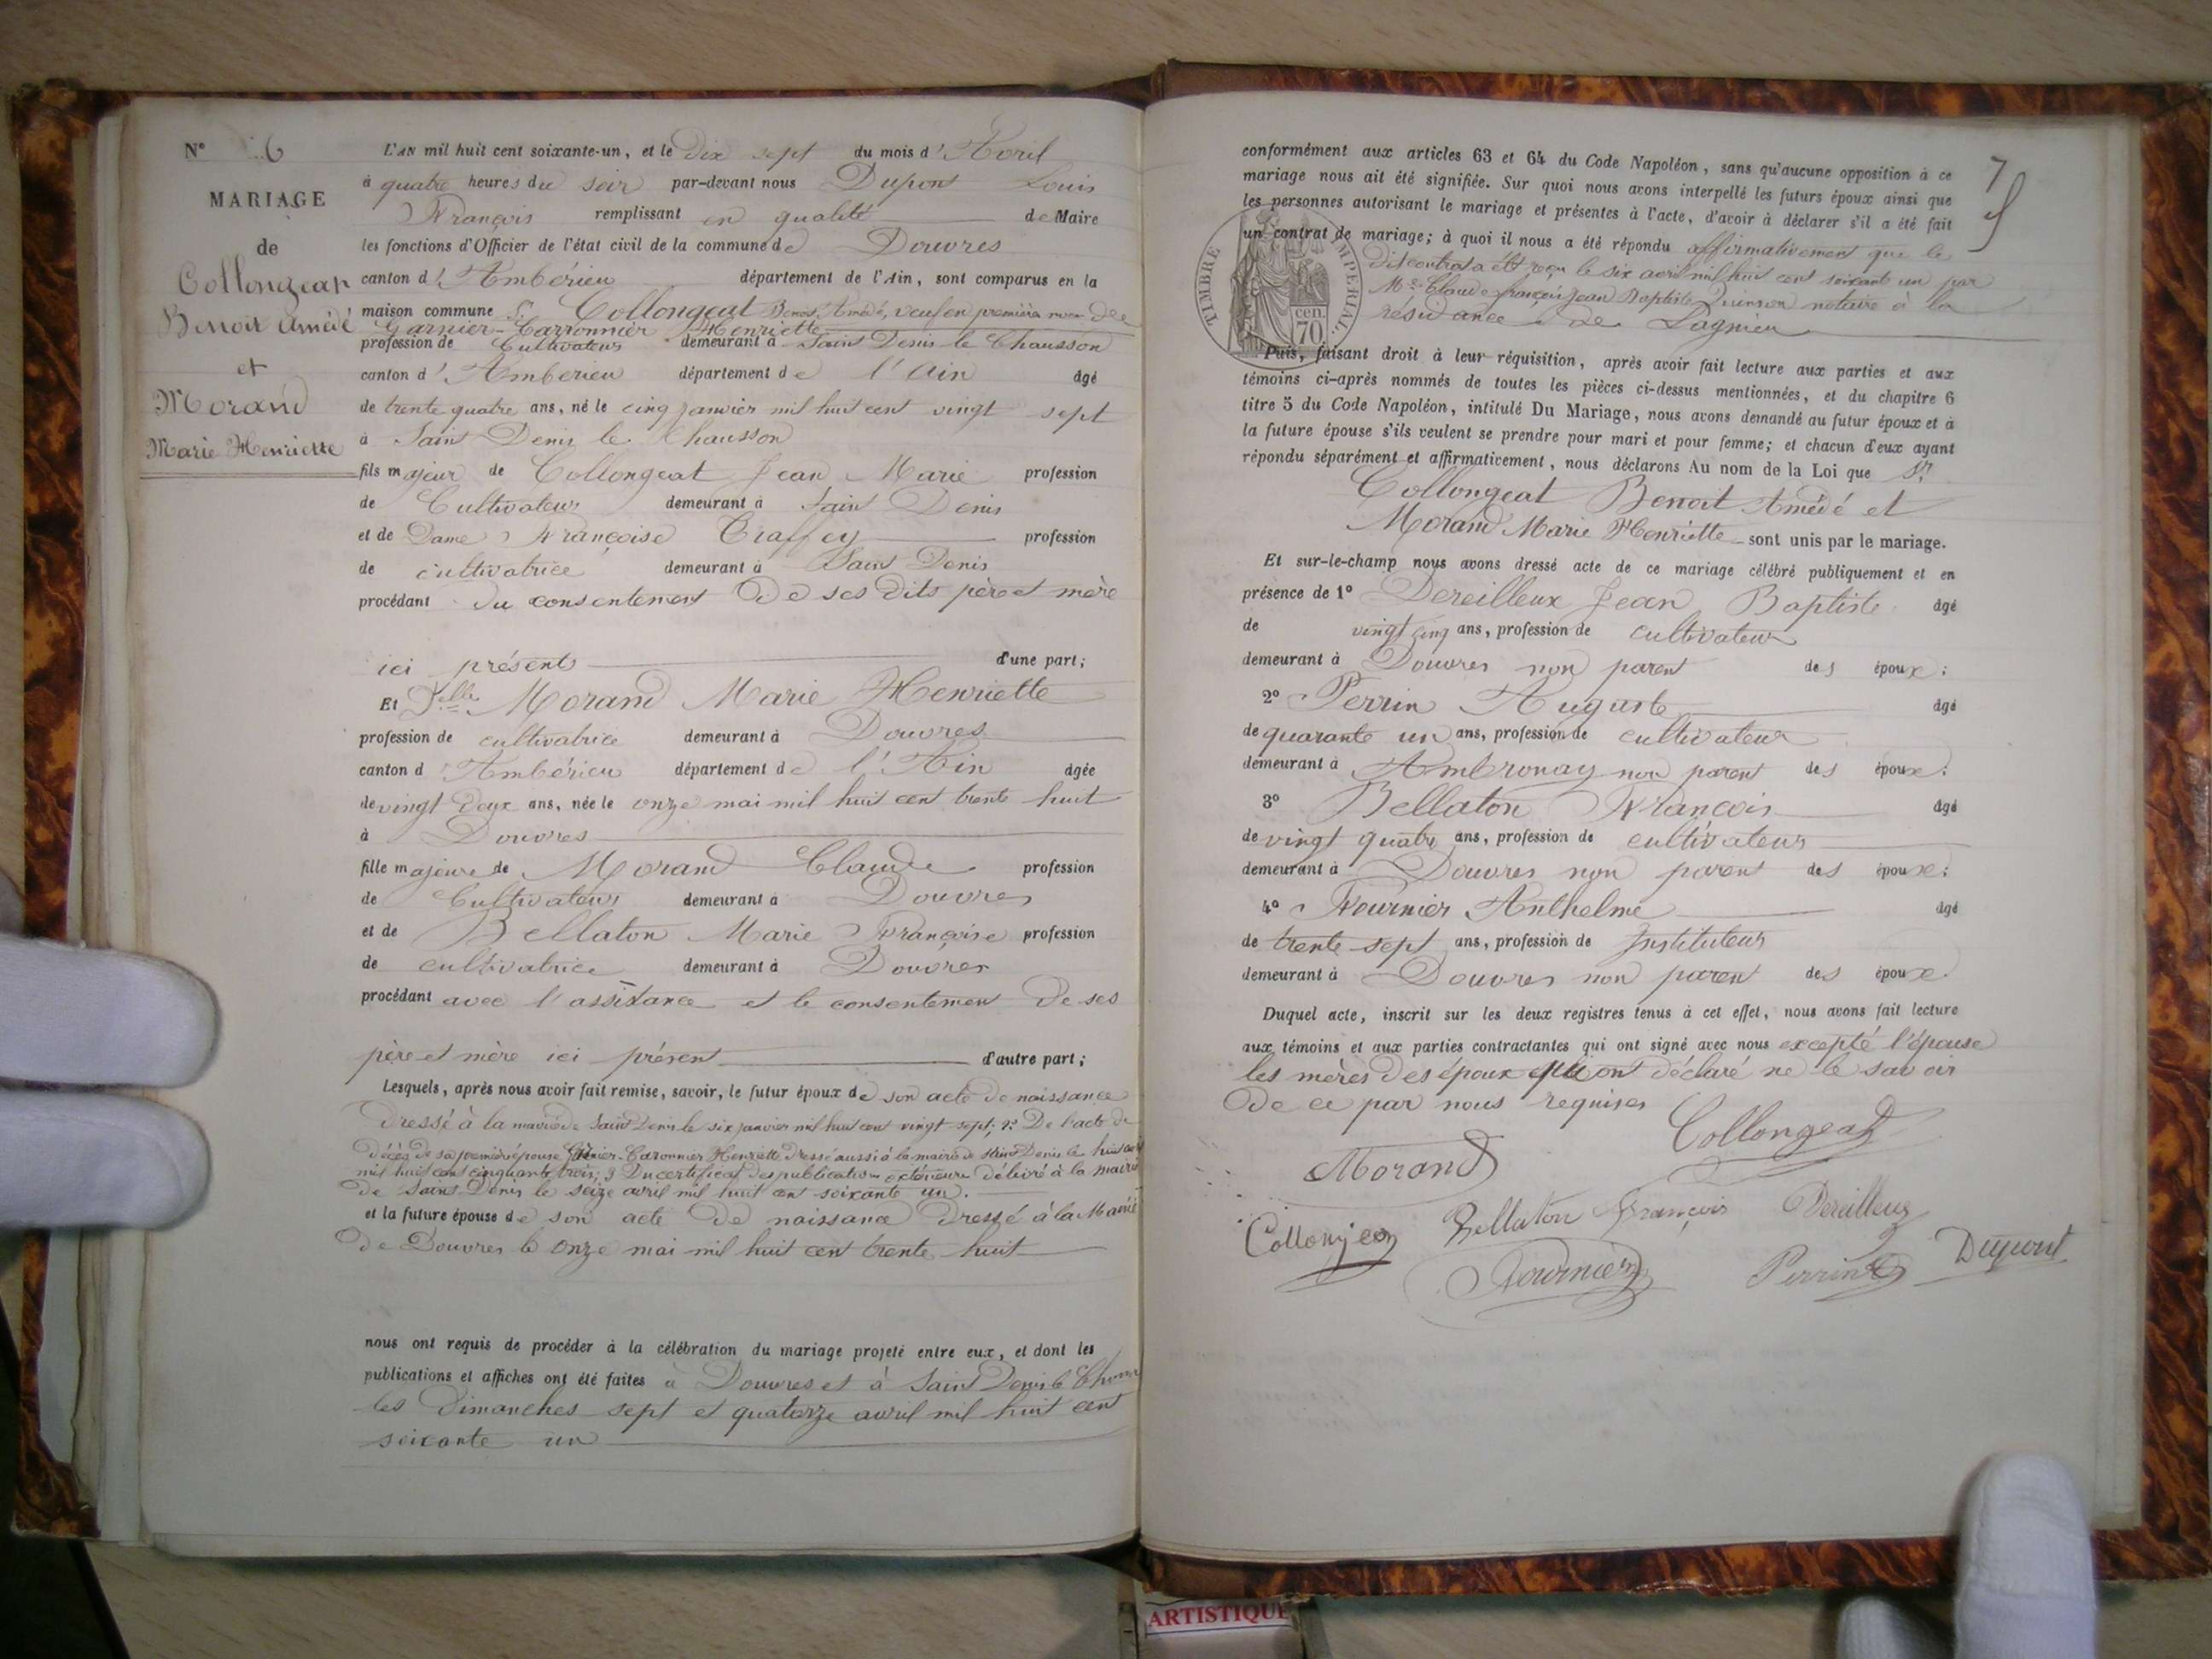 N° 6
MARIAGE
de
Collongeat
Benoit Amédé
et
Morand
Marie Henriette
L'AN mil huit cent soixante-un, et le Dix sept du mois d'Avril
à quatre heures du soir par-devant nous Dupont Louis
François remplissant en qualité de Maire
les fonctions d'Officier de l'état civil de la commune de Douvres
canton d'Ambérieu département de l'Ain, sont comparus en la
maison commune Sr Collongeat Benoit, Amédé, veuf en première noce de
Garnier-Carronnier Henriette
profession de Cultivateur demeurant à Saint Denis le Chausson
canton d'Amberieu département de l'Ain âgé
de trente quatre ans, né le cinq janvier mil huit cent vingt sept
à Saint Denis le Chausson
fils majeur de Collongeat Jean Marie profession
de Cultivateur demeurant à Saint Denis
et de Dame Françoise Traffey profession
de cultivatrice demeurant à Saint Denis
procédant du consentement De ses dits père et mère
ici présents d'une part;
Et Delle Morand Marie Henriette
profession de cultivatrice demeurant à Douvres
canton d'Ambérieu département de l'Ain âgée
de vingt deux ans, née le onze mai mil huit cent trente huit
à Douvres
fille majeure de Morand Claude profession
de Cultivateur demeurant à Douvres
et de Bellaton Marie Françoise profession
de cultivatrice demeurant à Douvres
procédant avec l'assistance et le consentement De ses
père et mère ici présent d'autre part;
Lesquels, après nous avoir fait remise, savoir, le futur époux de son acte de naissance
Dressé à la mairie de Saint Denis le six janvier mil huit cent vingt sept; 2° De l'acte de
décès de sa première épouse Garnier-Caronnier Henriette Dressé aussi à la mairie de Saint Denis le huit
mil huit cent cinquante trois; 3 Du certificat des publications extérieure délivré à la mairie
De Saint Denis le seize avril mil huit cent soixante un.
et la future épouse de son acte De naissance Dressé à la Mairie
De Douvres le onze mai mil huit cent trente huit
nous ont requis de procéder à la célébration du mariage projeté entre eux, et dont les
publications et affiches ont été faites à Douvres et à Saint Denis le
les Dimanches sept et quatorze avril mil huit cent
soixante un
7
TIMBRE IMPERIAL
70 cen.
conformément aux articles 63 et 64 du Code Napoléon, sans qu'aucune opposition à ce
mariage nous ait été signifiée. Sur quoi nous avons interpellé les futurs époux ainsi que
les personnes autorisant le mariage et présentes à l'acte, d'avoir à déclarer s'il a été fait
un contrat de mariage; à quoi il nous a été répondu affirmativement que le
dit contrat a été reçu le six avril mil huit cent soixante un par
Me Claude françois Jean Baptiste Quinson notaire à la
résidance de Lagnieu
Puis, faisant droit à leur réquisition, après avoir fait lecture aux parties et aux
témoins ci-après nommés de toutes les pièces ci-dessus mentionnées, et du chapitre 6
titre 5 du Code Napoléon, intitulé Du Mariage, nous avons demandé au futur époux et à
la future épouse s'ils veulent se prendre pour mari et pour femme; et chacun d'eux ayant
répondu séparément et affirmativement, nous déclarons Au nom de la Loi que Sr
Collongeat Benoit Amédé et
Morand Marie Henriette sont unis par le mariage.
Et sur-le-champ nous avons dressé acte de ce mariage célébré publiquement et en
présence de 1° Dereilleux Jean Baptiste âgé
de vingt cinq ans, profession de cultivateur
demeurant à Douvres non parent des époux;
2° Perrin Auguste âgé
de quarante un ans, profession de cultivateur
demeurant à Ambronay non parent des époux;
3° Bellaton François âgé
de vingt quatre ans, profession de cultivateur
demeurant à Douvres non parent des époux;
4° Fournier Anthelme âgé
de trente sept ans, profession de Instituteur
demeurant à Douvres non parent des époux.
Duquel acte, inscrit sur les deux registres tenus à cet effet, nous avons fait lecture
aux témoins et aux parties contractantes qui ont signé avec nous excepté l'épouse
les mères des époux ont déclaré ne le savoir
De ce par nous requises
Collongeat
Morand
Collonjeon Bellaton François Dereilleux
Fournier Perrin Dupont
ARTISTIQUE